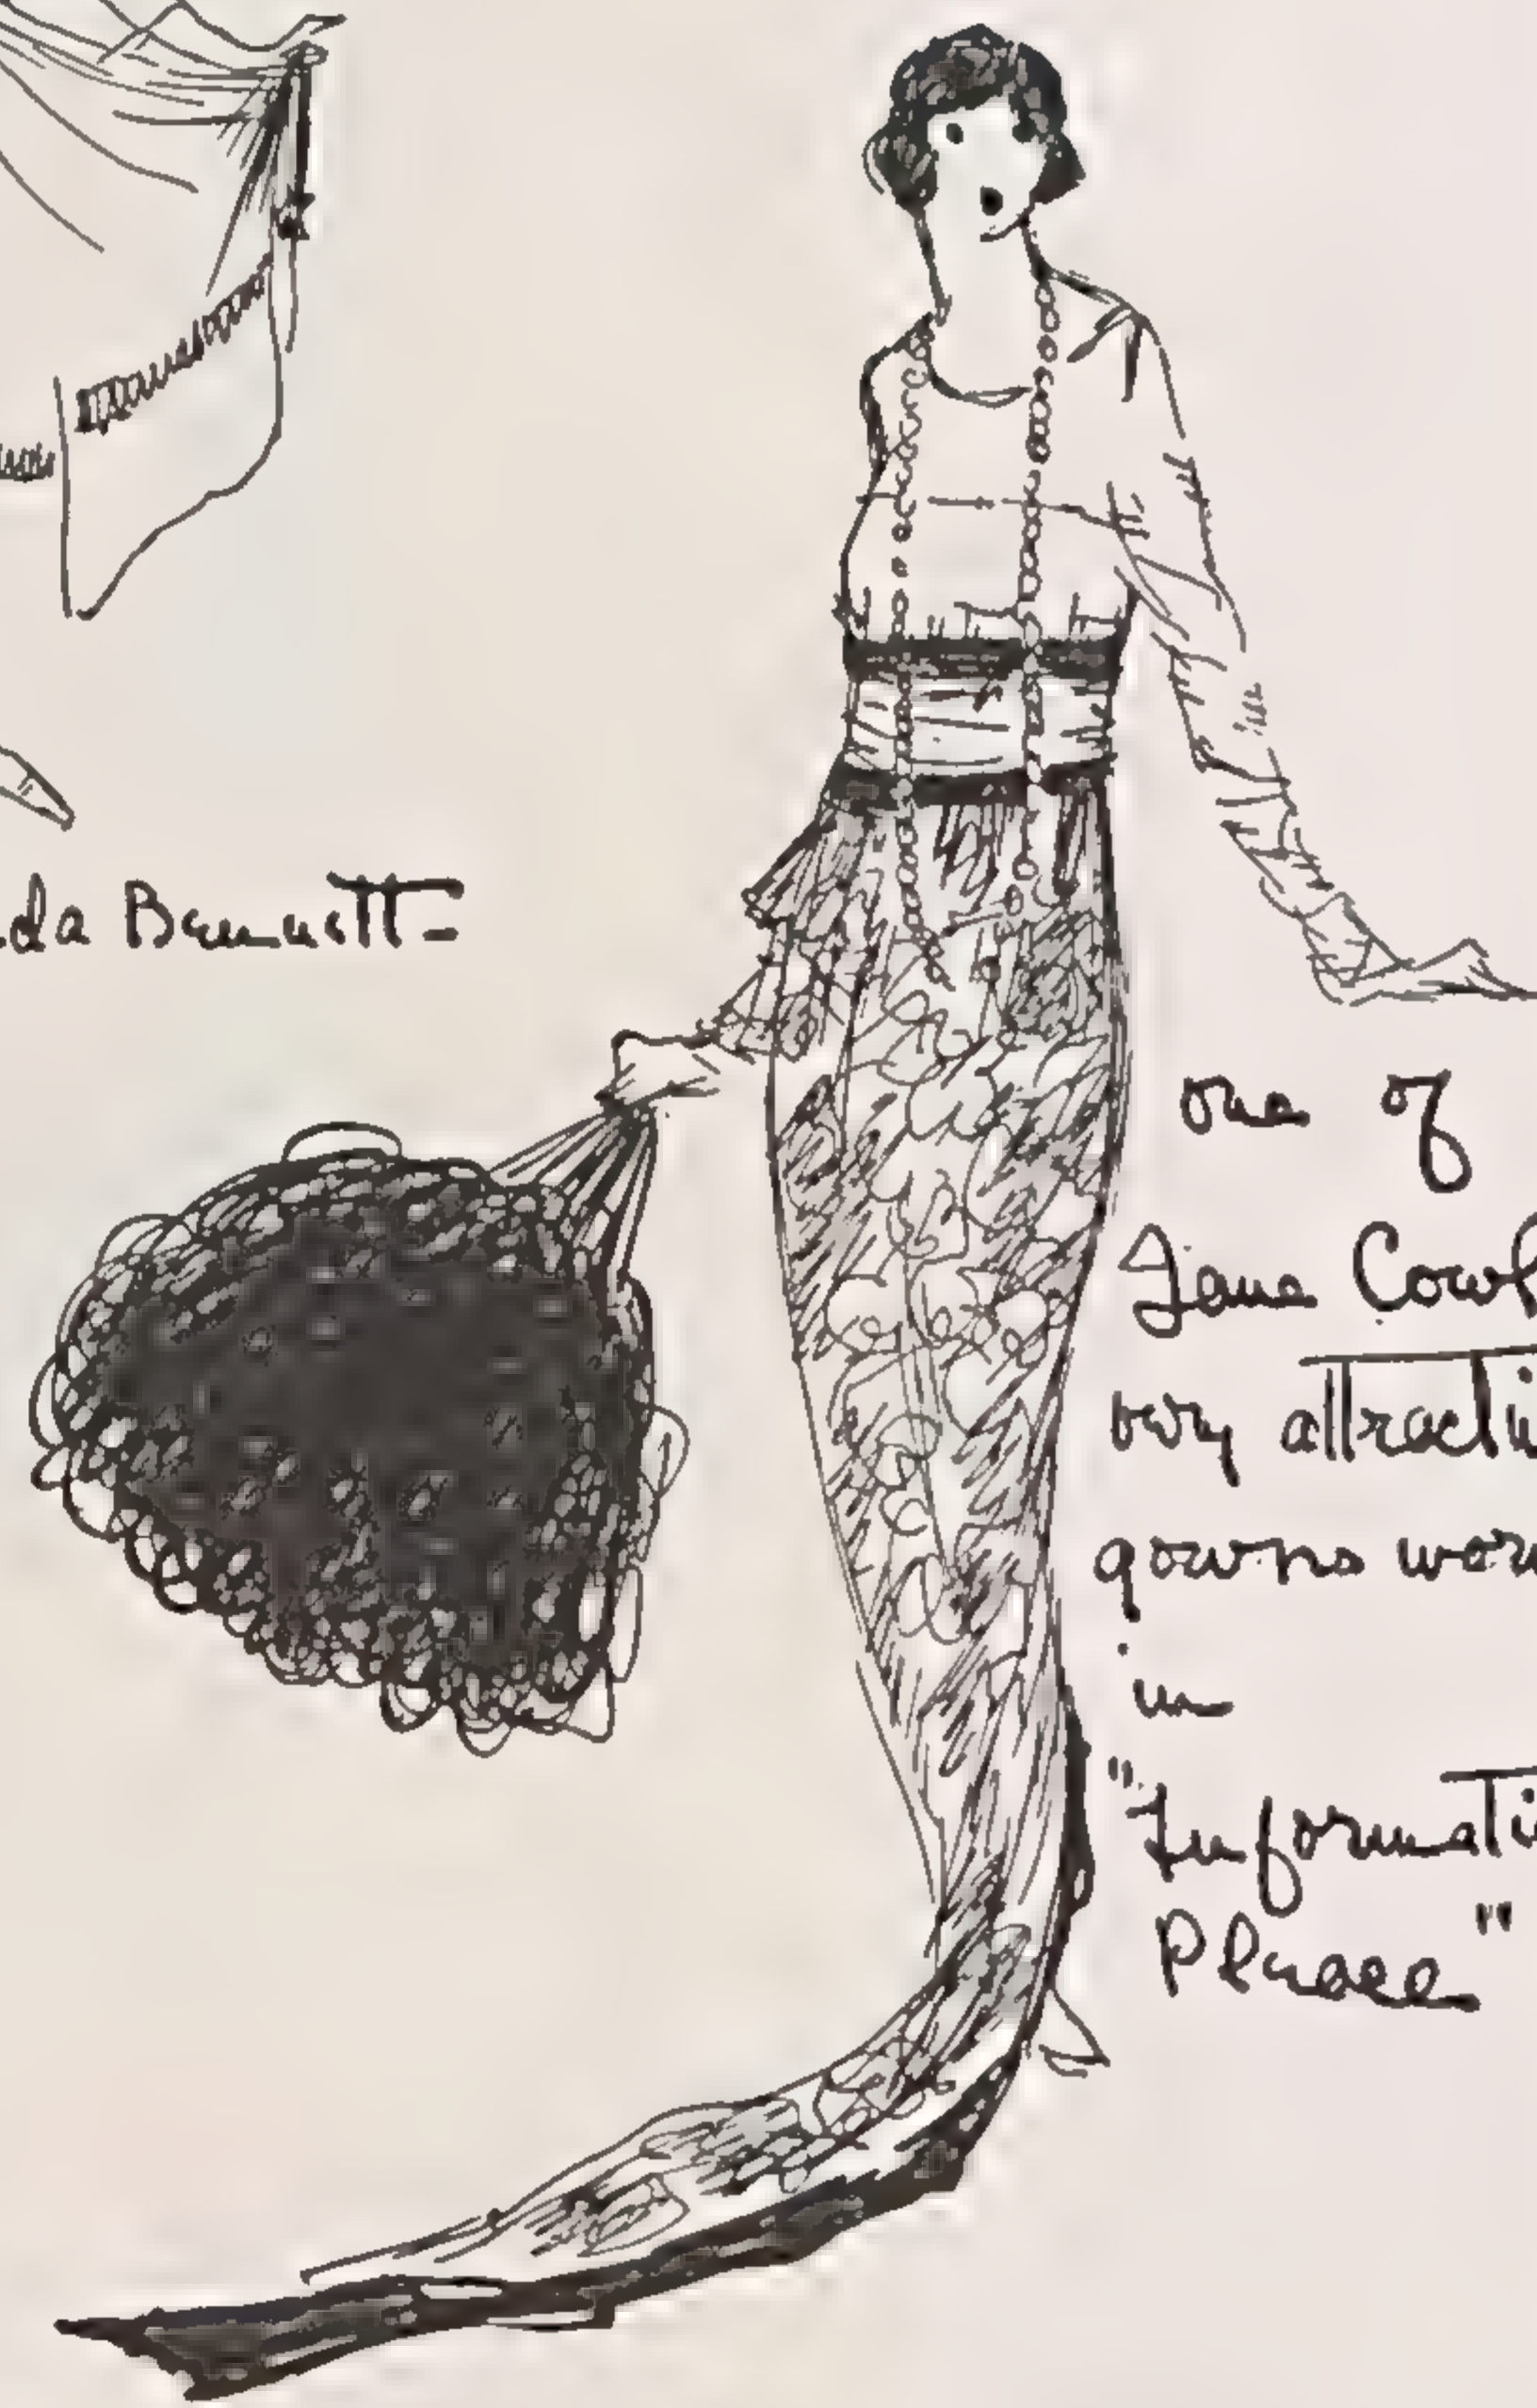 da Bennett-
one of
Jane Cowl
very attracti
gowns wor
in
"Informati
Please"